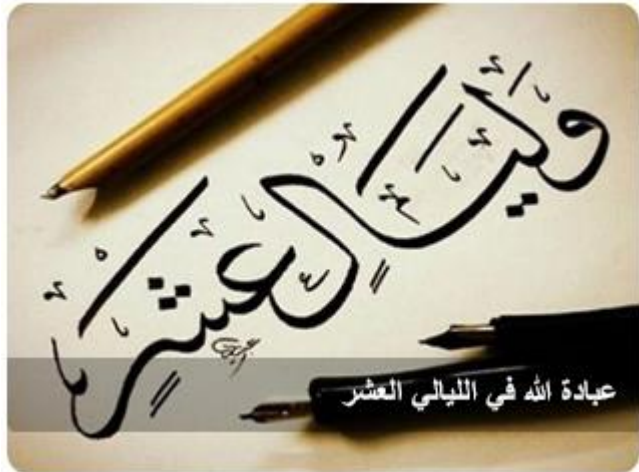 وَلَيَالٍ عَشْرٍ
عبادة الله في الليالي العشر